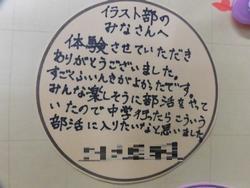 イラスト部の
みなさんへ
体験させていただき
ありがとうございました。
すごくふいんきがよかったです。
みんな楽しそうに部活をやって
いたので中学行ったらこういう
部活に入りたいなと思いました。